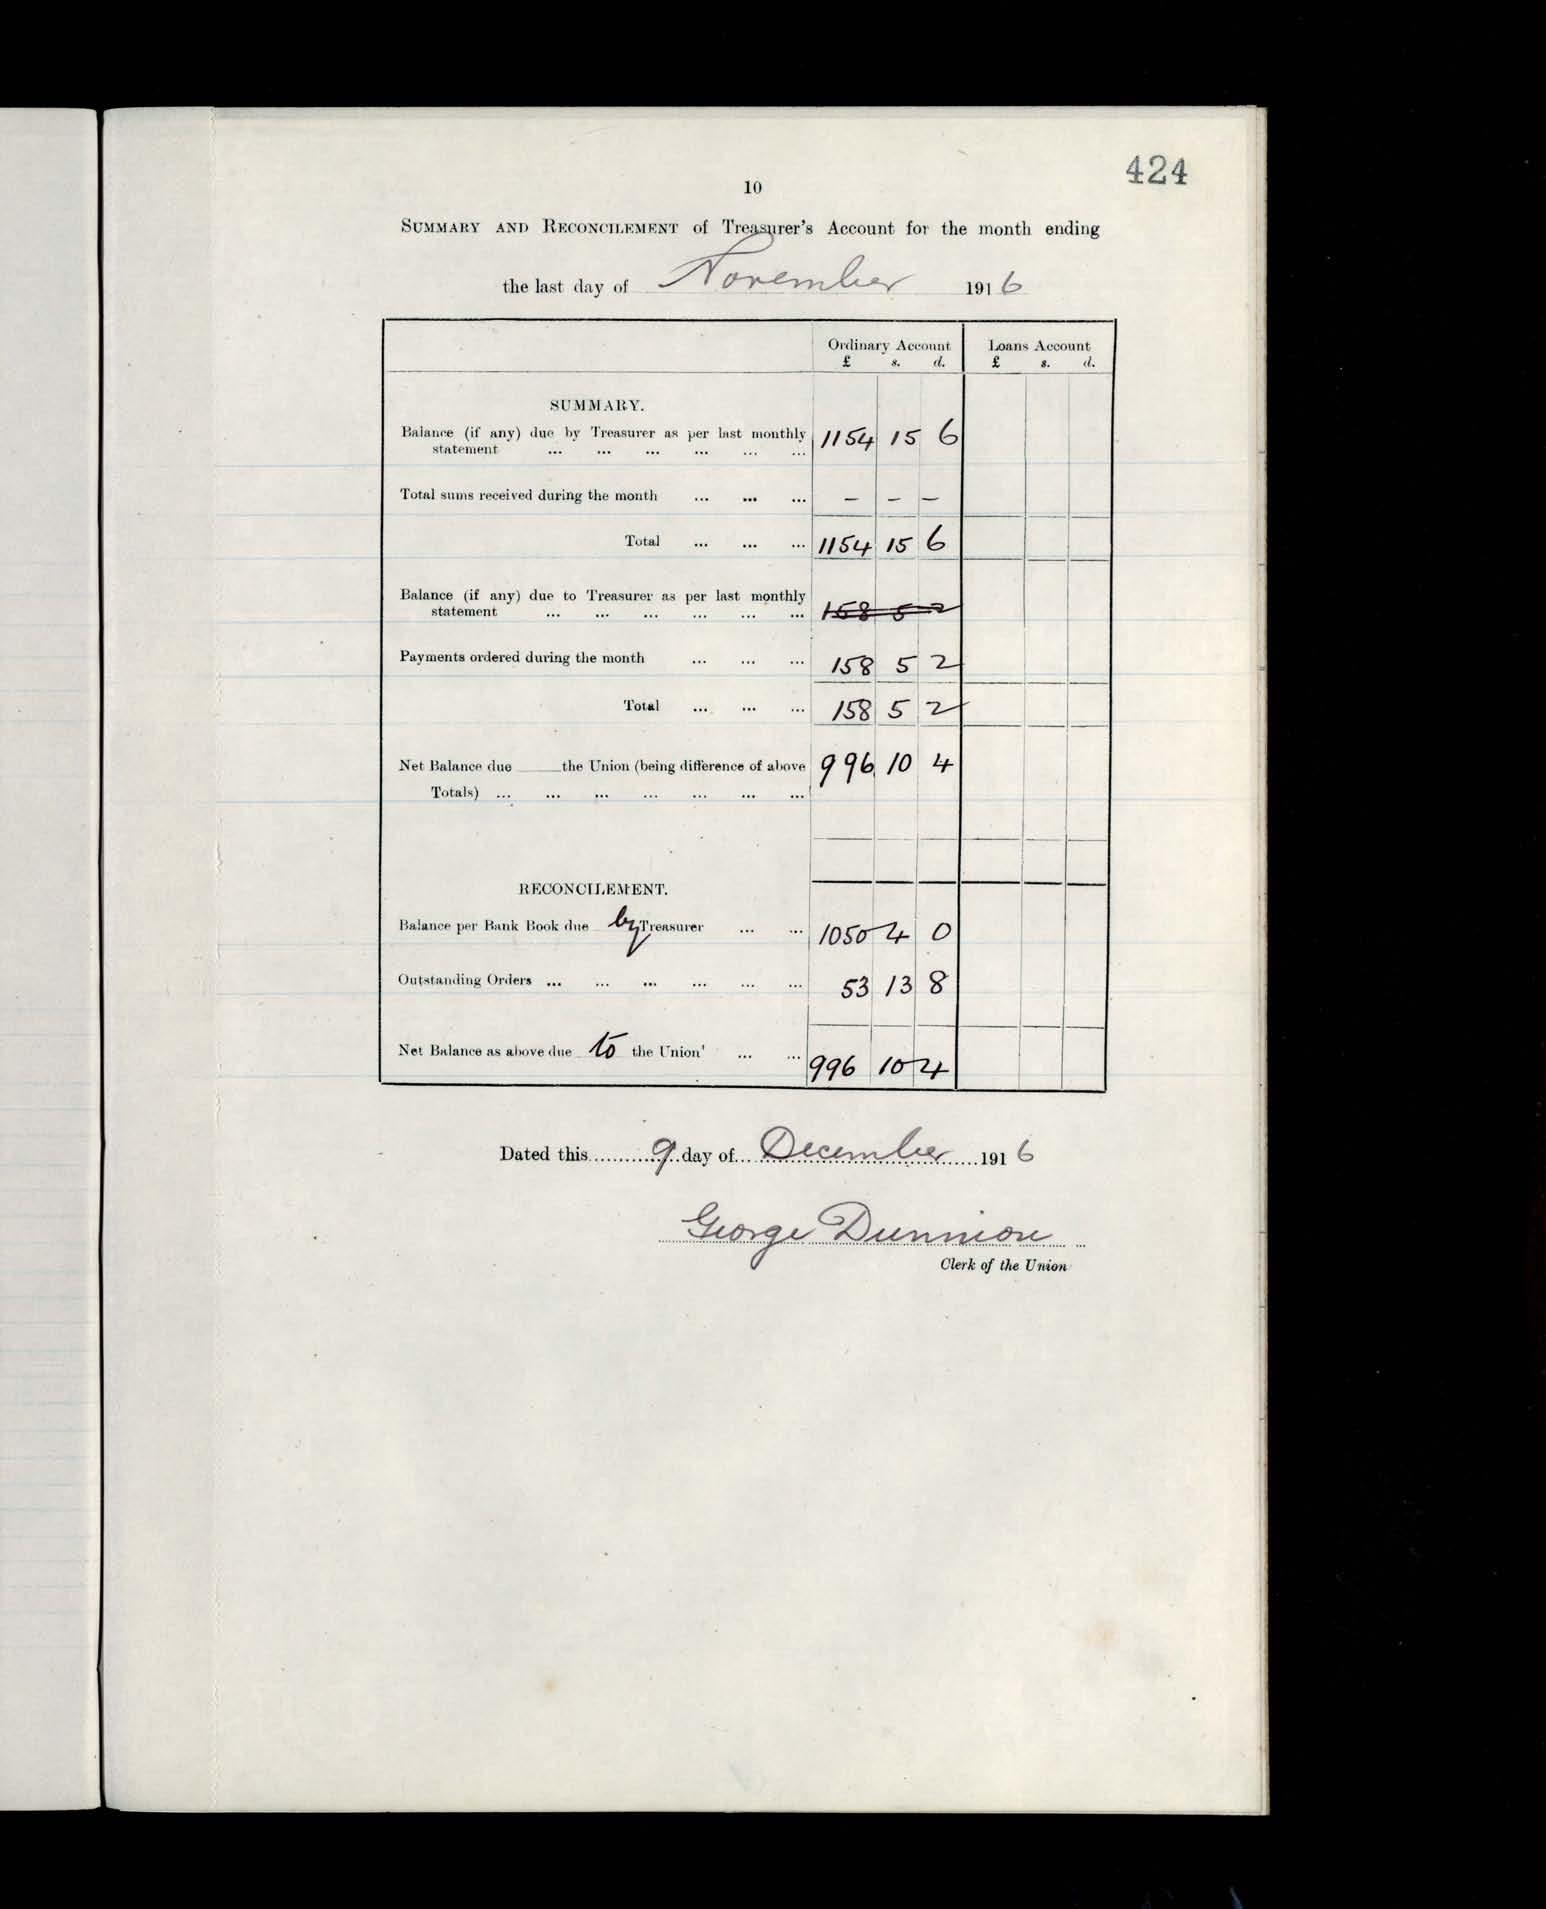 424
10
SUMMARY AND RECONCILEMENT of Treasurer's Account for the month ending
the last day of November 1916
Ordinary Account Loans Account
£ s. d. £ s. d.
SUMMARY.
Balance (if any) due by Treasurer as per last monthly 1154 15 6
statement ... ... ... ... ... ...
Total sums received during the month ... ... ... – – –
Total ... ... ... 1154 15 6
Balance (if any) due to Treasurer as per last monthly
statement ... ... ... ... ... ... 158 5 2
Payments ordered during the month ... ... ... 158 5 2
Total ... ... ... 158 5 2
Net Balance due ____ the Union (being difference of above 996 10 4
Totals) ... ... ... ... ... ... ...
RECONCILEMENT.
Balance per Bank Book due by Treasurer ... ... 1050 4 0
Outstanding Orders ... ... ... ... ... ... 53 13 8
Net Balance as above due to the Union' ... ... 996 10 4
Dated this 9 day of December 1916
George Dunnion
Clerk of the Union